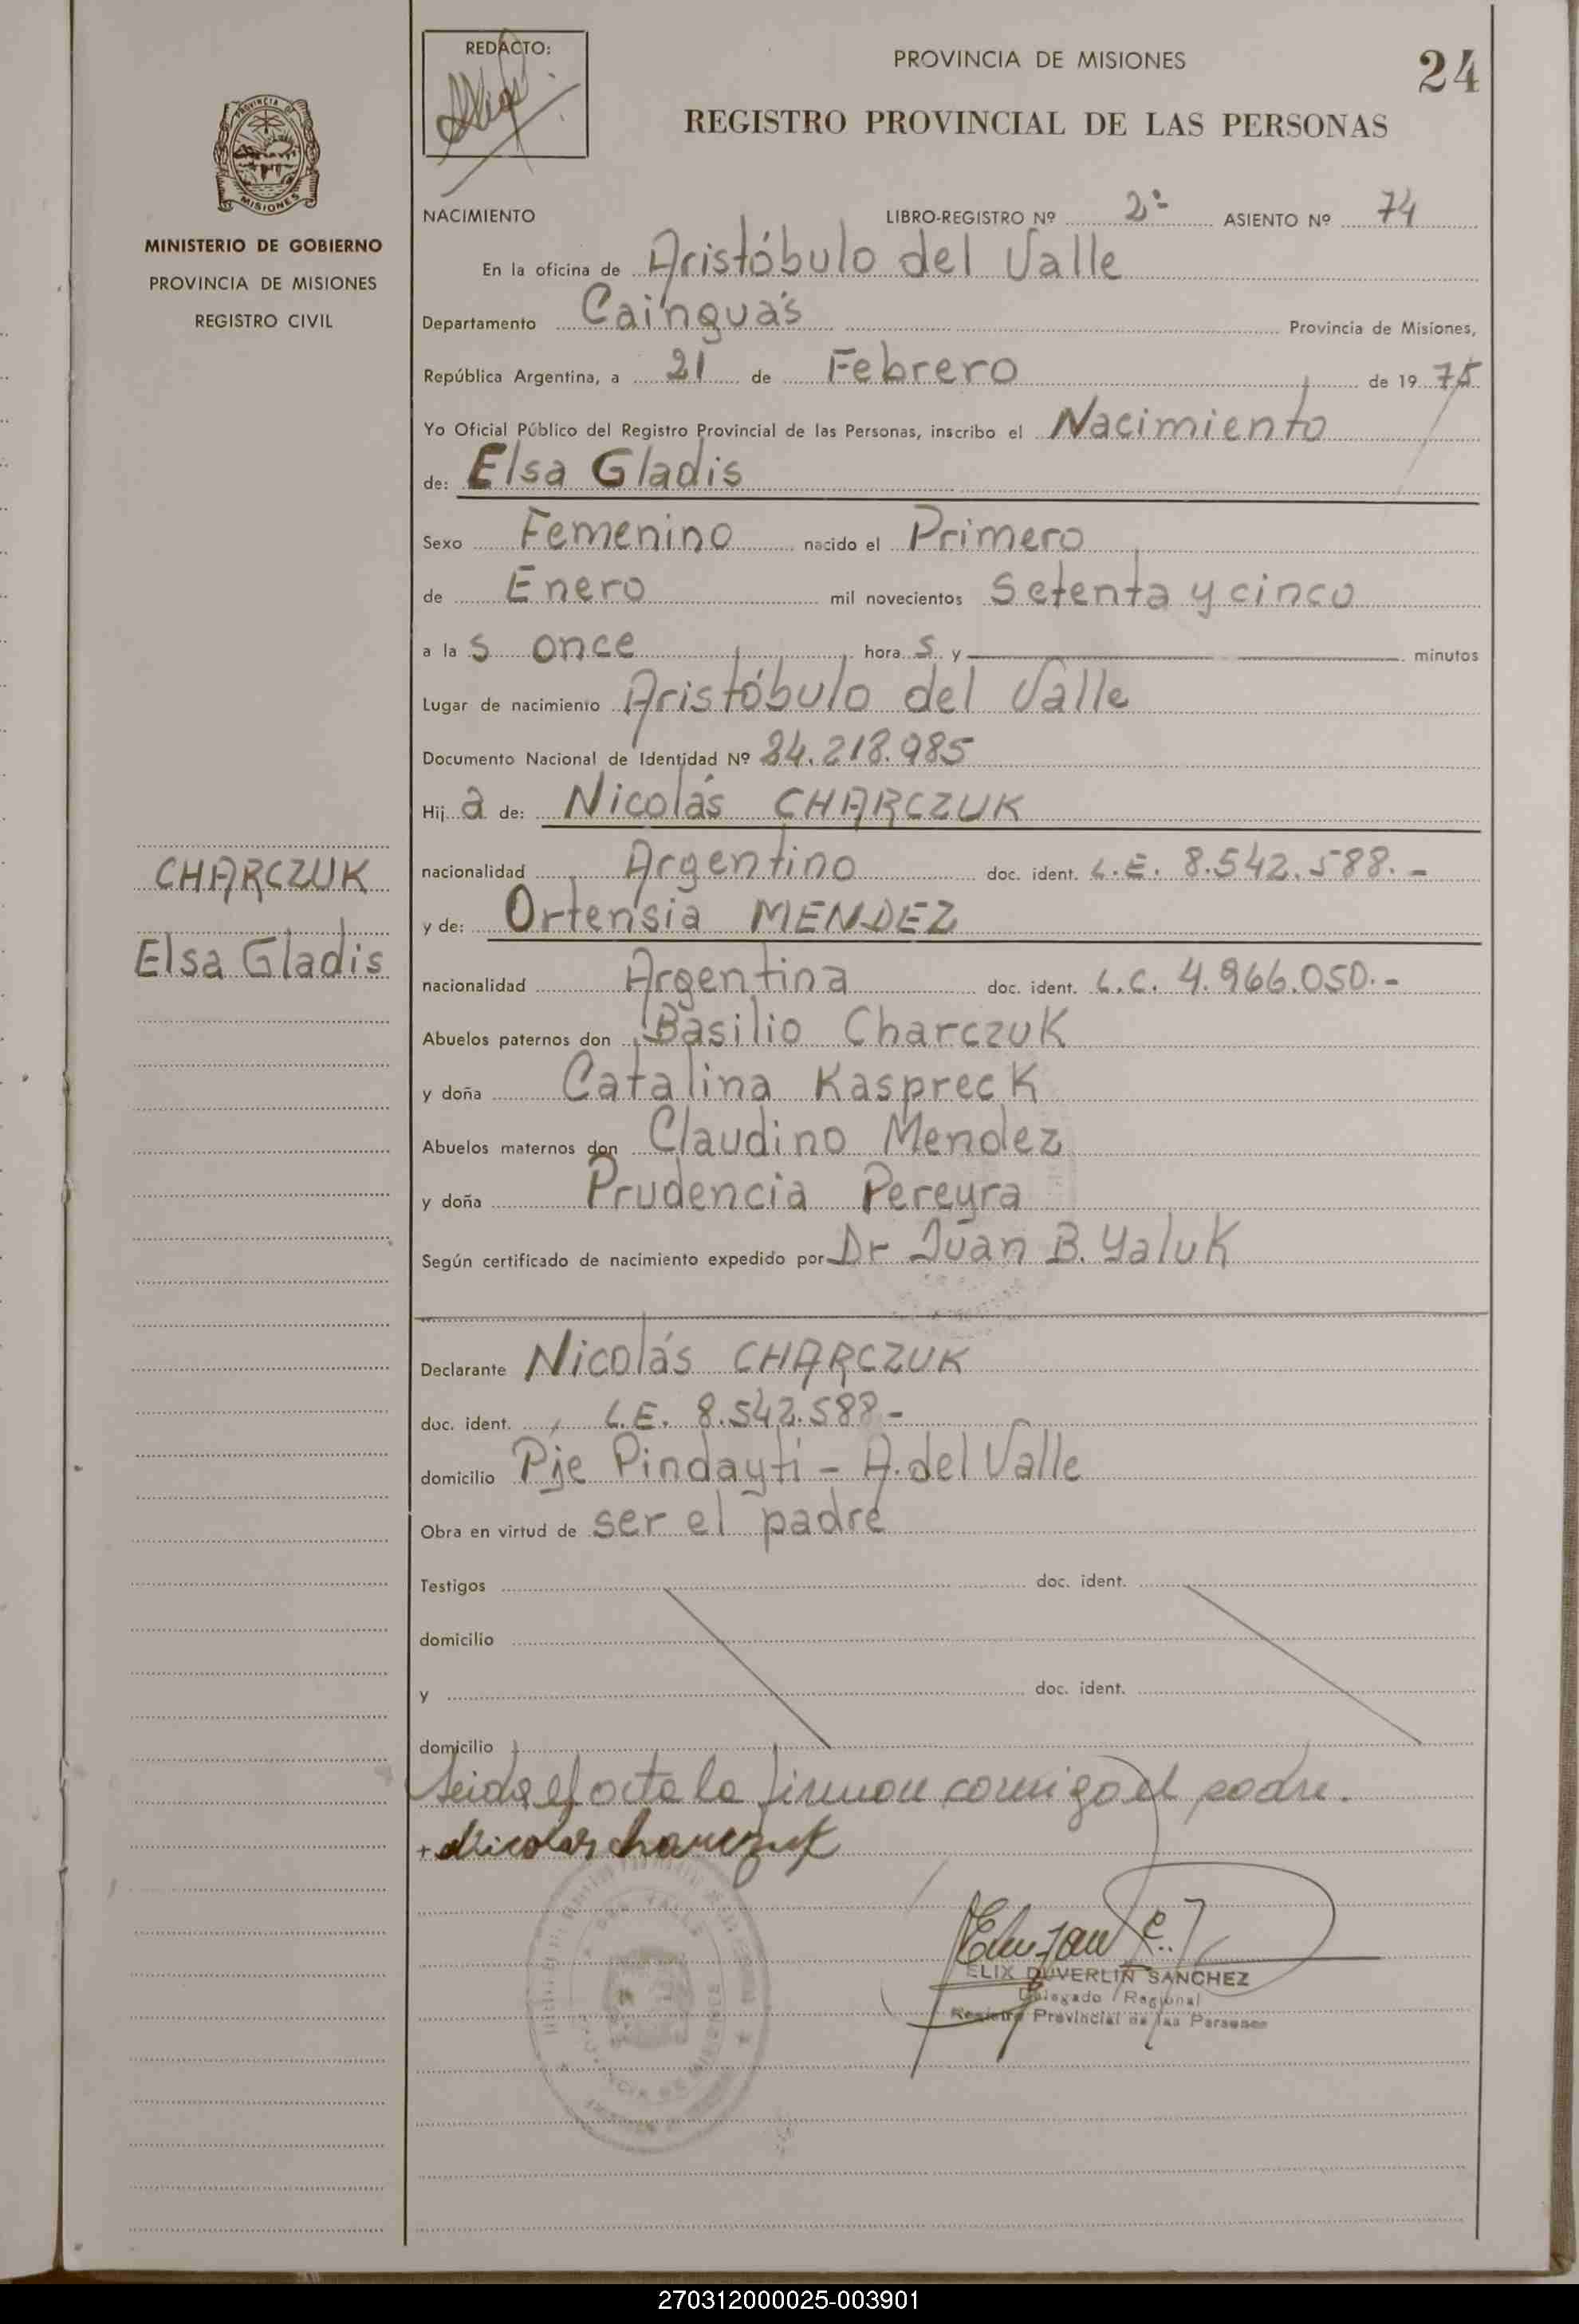 REDACTO:
PROVINCIA DE MISIONES
24
REGISTRO PROVINCIAL DE LAS PERSONAS
MISIONES
MINISTERIO DE GOBIERNO
PROVINCIA DE MISIONES
REGISTRO CIVIL
NACIMIENTO LIBRO-REGISTRO Nº 2º ASIENTO Nº 74
En la oficina de Aristóbulo del Valle
Departamento Cainguás Provincia de Misiones,
República Argentina, a 21 de Febrero de 19 75
Yo Oficial Público del Registro Provincial de las Personas, inscribo el Nacimiento
de: Elsa Gladis
Sexo Femenino nacido el Primero
de Enero mil novecientos Setenta y cinco
a la s once hora s y minutos
Lugar de nacimiento Aristóbulo del Valle
Documento Nacional de Identidad Nº 24.218.985
Hij a de: Nicolás CHARCZUK
nacionalidad Argentino doc. ident. L.E. 8.542.588.-
y de: Ortensia MENDEZ
nacionalidad Argentina doc. ident. L.C. 4.966.050.-
CHARCZUK
Elsa Gladis
Abuelos paternos don Basilio Charczuk
y doña Catalina Kaspreck
Abuelos maternos don Claudino Mendez
y doña Prudencia Pereyra
Según certificado de nacimiento expedido por Dr Juan B. Yaluk
Declarante Nicolás CHARCZUK
doc. ident. L.E. 8.542.588-
domicilio Pje Pindaytí - A. del Valle
Obra en virtud de ser el padre
Testigos doc. ident.
domicilio
y doc. ident.
domicilio
Leida el acta la firman conmigo el padre.
+ Nicolas Charczuk
ELIX DUVERLIN SANCHEZ
Delegado Regional
Registro Provincial de las Personas
270312000025-003901